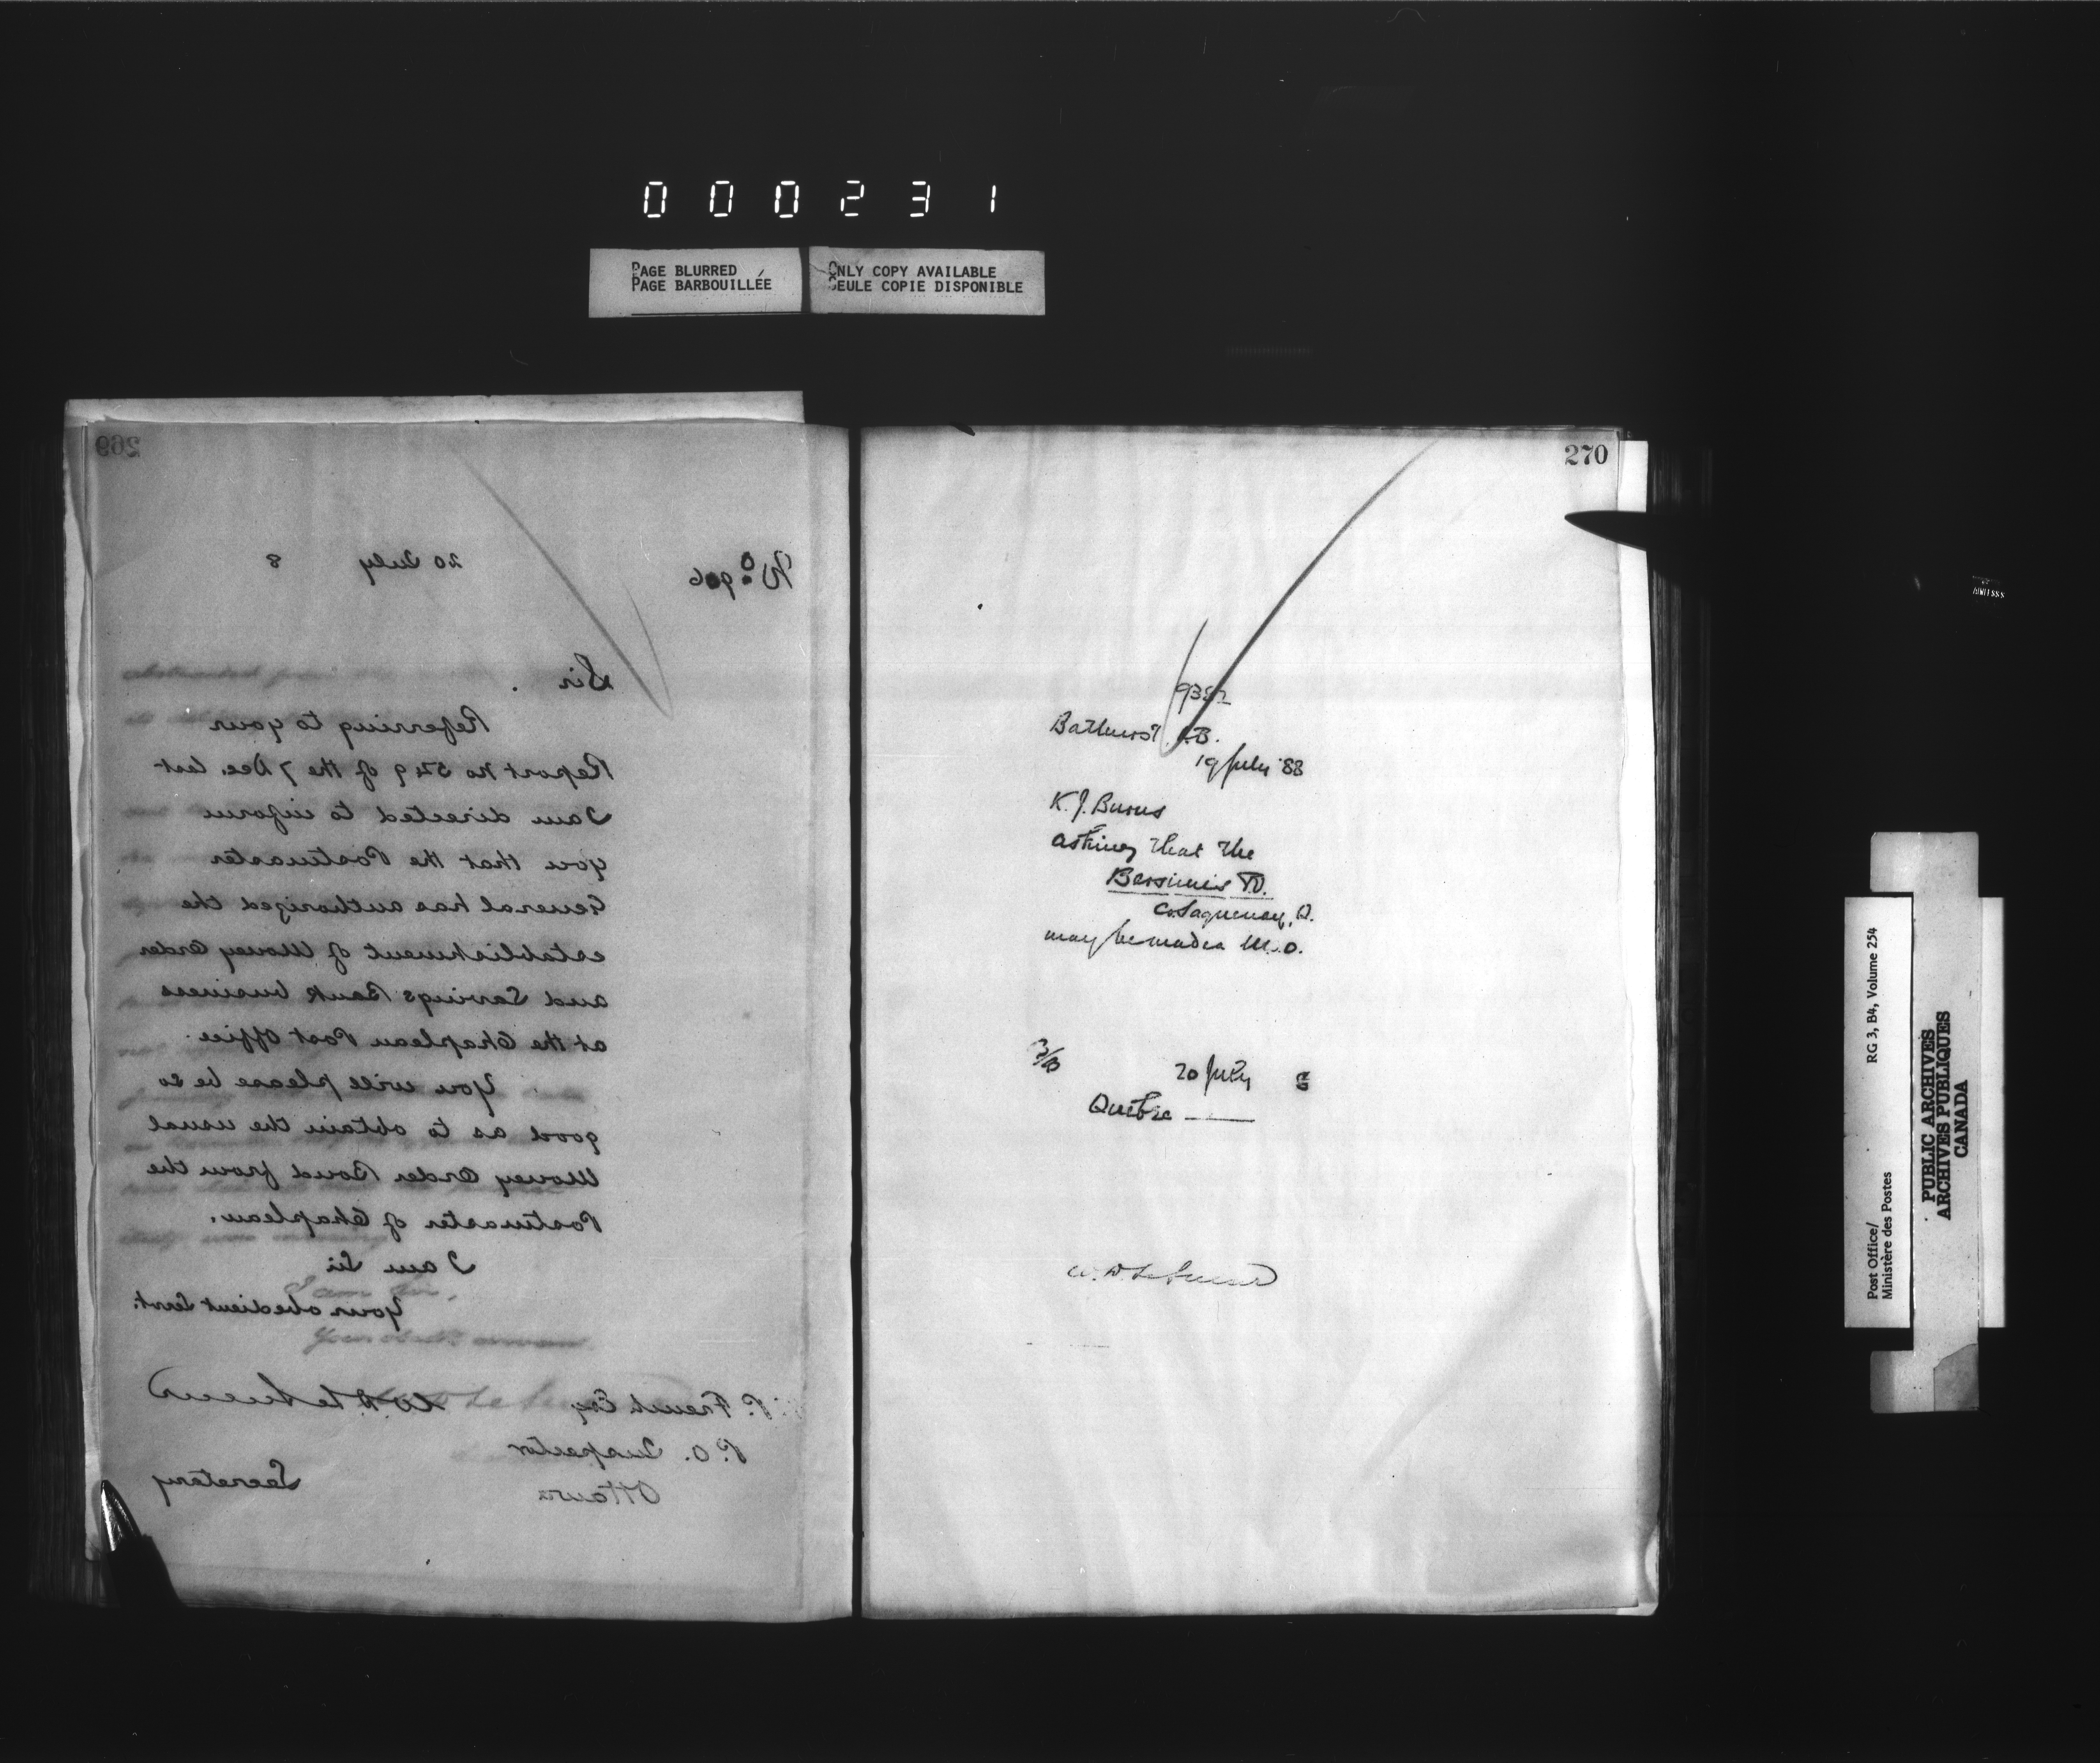 000231
PAGE BLURRED
PAGE BARBOUILLÉE
ONLY COPY AVAILABLE
SEULE COPIE DISPONIBLE
269
No. 906
20 July 8
Sir
Referring to your
Report No 549 of the 7 Dec. last
I am directed to inform
you that the Postmaster
General has authorized the
establishment of Money Order
and Savings Bank business
at the Chapleau Post Office.
You will please be so
good as to obtain the usual
Money Order Bond from the
Postmaster of Chapleau.
I am Sir
Your obedient Servt.
W.D. LeSueur
Secretary
P. French Esq
P.O. Inspector
Ottawa
270
Bathurst N.B.
19 July '88
K. J. Burns
asking that the
Bersimis P.O.
Co. Saguenay, Q.
may be made a M.O.
20 July 8
Quebec
W.D. LeSueur
Post Office/
Ministère des Postes
RG 3, B4, Volume 254
PUBLIC ARCHIVES
ARCHIVES PUBLIQUES
CANADA